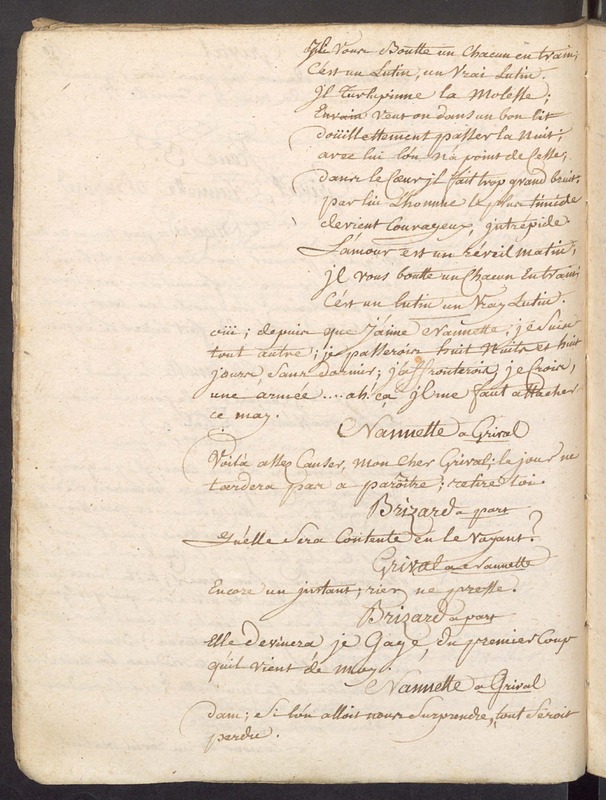 Il vous Boutte un Chacun en train;
C'est un Lutin, un Vrai Lutin.
Jl Turlupinne la Molesse;
Envain veut on dans un bon lit
doüillettement passer la Nuit;
avec lui l'ón n'a point de Cesse,
dans le Cœur jl fait trop grand bruit;
par lui L'homme le plus timide
devient Courageux, jntrépide.
L'amour est un réveil matin,
jl vous boutte un Chacun En train;
C'est un lutin un Vray Lutin.
oüi; depuis que J'aime Nannette, je suis
tout autre; je passerois huit Nuits et huit
jours sans dormir; j'affronterois, je Crois,
une armée .... ah! ça jl me faut attacher
ce may.
Nannette a Grival
Voilà assez Causer, mon Cher Grival; le jour ne
tardera pas a paroître; retire toi.
Brizard a part
Qu'elle sera Contente en le Voyant?
Grival a Nannette
Encore un jnstant; rien ne presse.
Brizard a part
Elle devinera je Gage, du premier Coup
qu'il vient de moy.
Nannette a Grival
dam; si l'ón alloit nous surprendre, tout seroit
perdu.